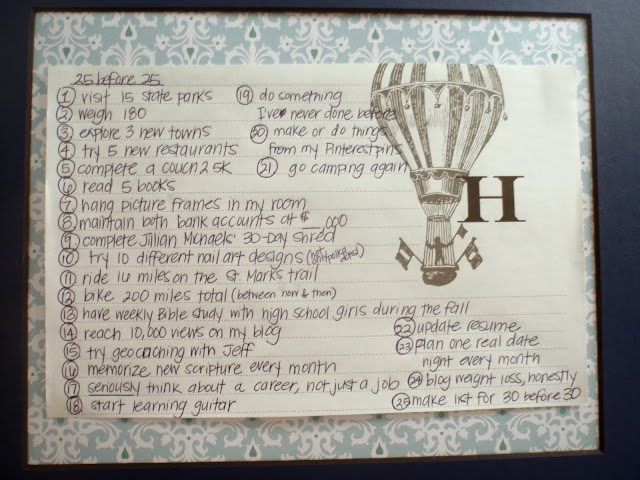 25 before 25
1 visit 15 state parks
2 weigh 180
3 explore 3 new towns
4 try 5 new restaurants
5 complete a couch 2 5K
6 read 5 books
7 hang picture frames in my room
8 maintain both bank accounts at $__,000
9 complete Jillian Michaels' 30-Day Shred
10 try 10 different nail art designs (not polka dots!)
11 ride 16 miles on the St. Marks trail
12 bike 200 miles total (between now & then)
13 have weekly Bible study with high school girls during the fall
14 reach 10,000 views on my blog
15 try geocaching with Jeff
16 memorize new scripture every month
17 seriously think about a career, not just a job
18 start learning guitar
19 do something
I've never done before
20 make or do things
from my Pinterest pins
21 go camping again
H
22 update resume
23 plan one real date
night every month
24 blog weight loss, honestly
25 make list for 30 before 30